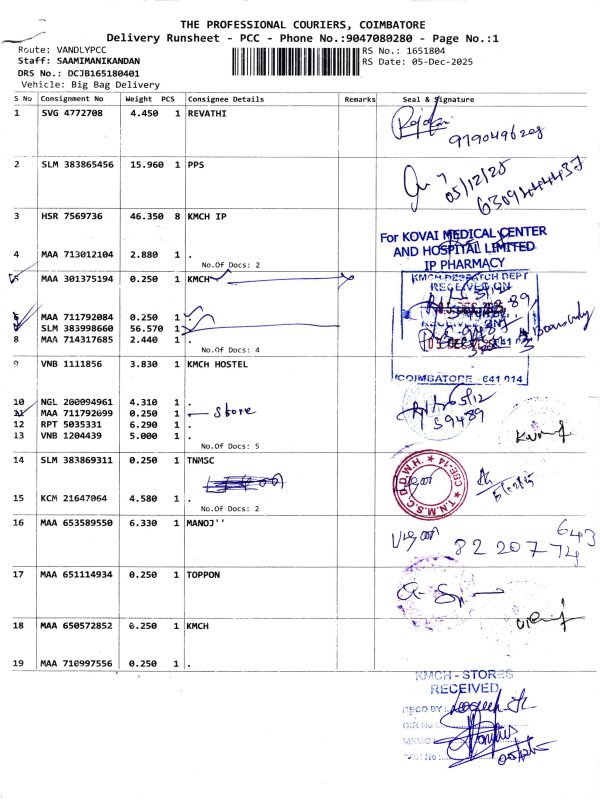 THE PROFESSIONAL COURIERS, COIMBATORE
Delivery Runsheet - PCC - Phone No.:9047080280 - Page No.:1
Route: VANDLYPCC
RS No.: 1651804
Staff: SAAMIMANIKANDAN
RS Date: 05-Dec-2025
DRS No.: DCJB165180401
Vehicle: Big Bag Delivery
S No Consignment No Weight PCS Consignee Details Remarks Seal & Signature
1 SVG 4772708 4.450 1 REVATHI
9790496208
2 SLM 383865456 15.960 1 PPS
05/12/25
6309444437
3 HSR 7569736 46.350 8 KMCH IP
For KOVAI MEDICAL CENTER
AND HOSPITAL LIMITED
IP PHARMACY
4 MAA 713012104 2.880 1 .
No.Of Docs: 2
5 MAA 301375194 0.250 1 KMCH
KMCH-DESPATCH DEPT
RECEIVED ON
6 MAA 711792084 0.250 1 .
7 SLM 383998660 56.570 1 .
8 MAA 714317685 2.440 1 .
No.Of Docs: 4
COIMBATORE - 641 014
9 VNB 1111856 3.830 1 KMCH HOSTEL
10 NGL 200094961 4.310 1 .
11 MAA 711792099 0.250 1 . Store
12 RPT 5035331 6.290 1 .
13 VNB 1204439 5.000 1 .
No.Of Docs: 5
59489
14 SLM 383869311 0.250 1 TNMSC
5/12/25
15 KCM 21647064 4.580 1 .
No.Of Docs: 2
16 MAA 653589550 6.330 1 MANOJ''
643
82207774
17 MAA 651114934 0.250 1 TOPPON
18 MAA 650572852 6.250 1 KMCH
19 MAA 710997556 0.250 1 .
KMCH - STORES
RECEIVED
RECD BY:
GIR No :
MEMO